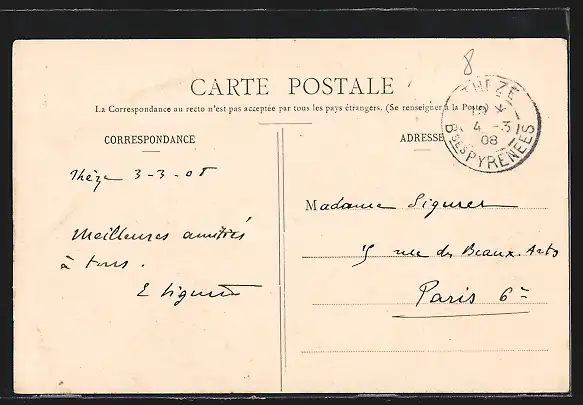 8
CARTE POSTALE
La Correspondance au recto n'est pas acceptée par tous les pays étrangers. (Se renseigner à la Poste)
THEZE
4 -3
08
BSES PYRENEES
CORRESPONDANCE
ADRESSE
Thèze 3-3-08
Meilleures amitiés
à tous.
E
Madame
5 rue des Beaux-Arts
Paris 6e